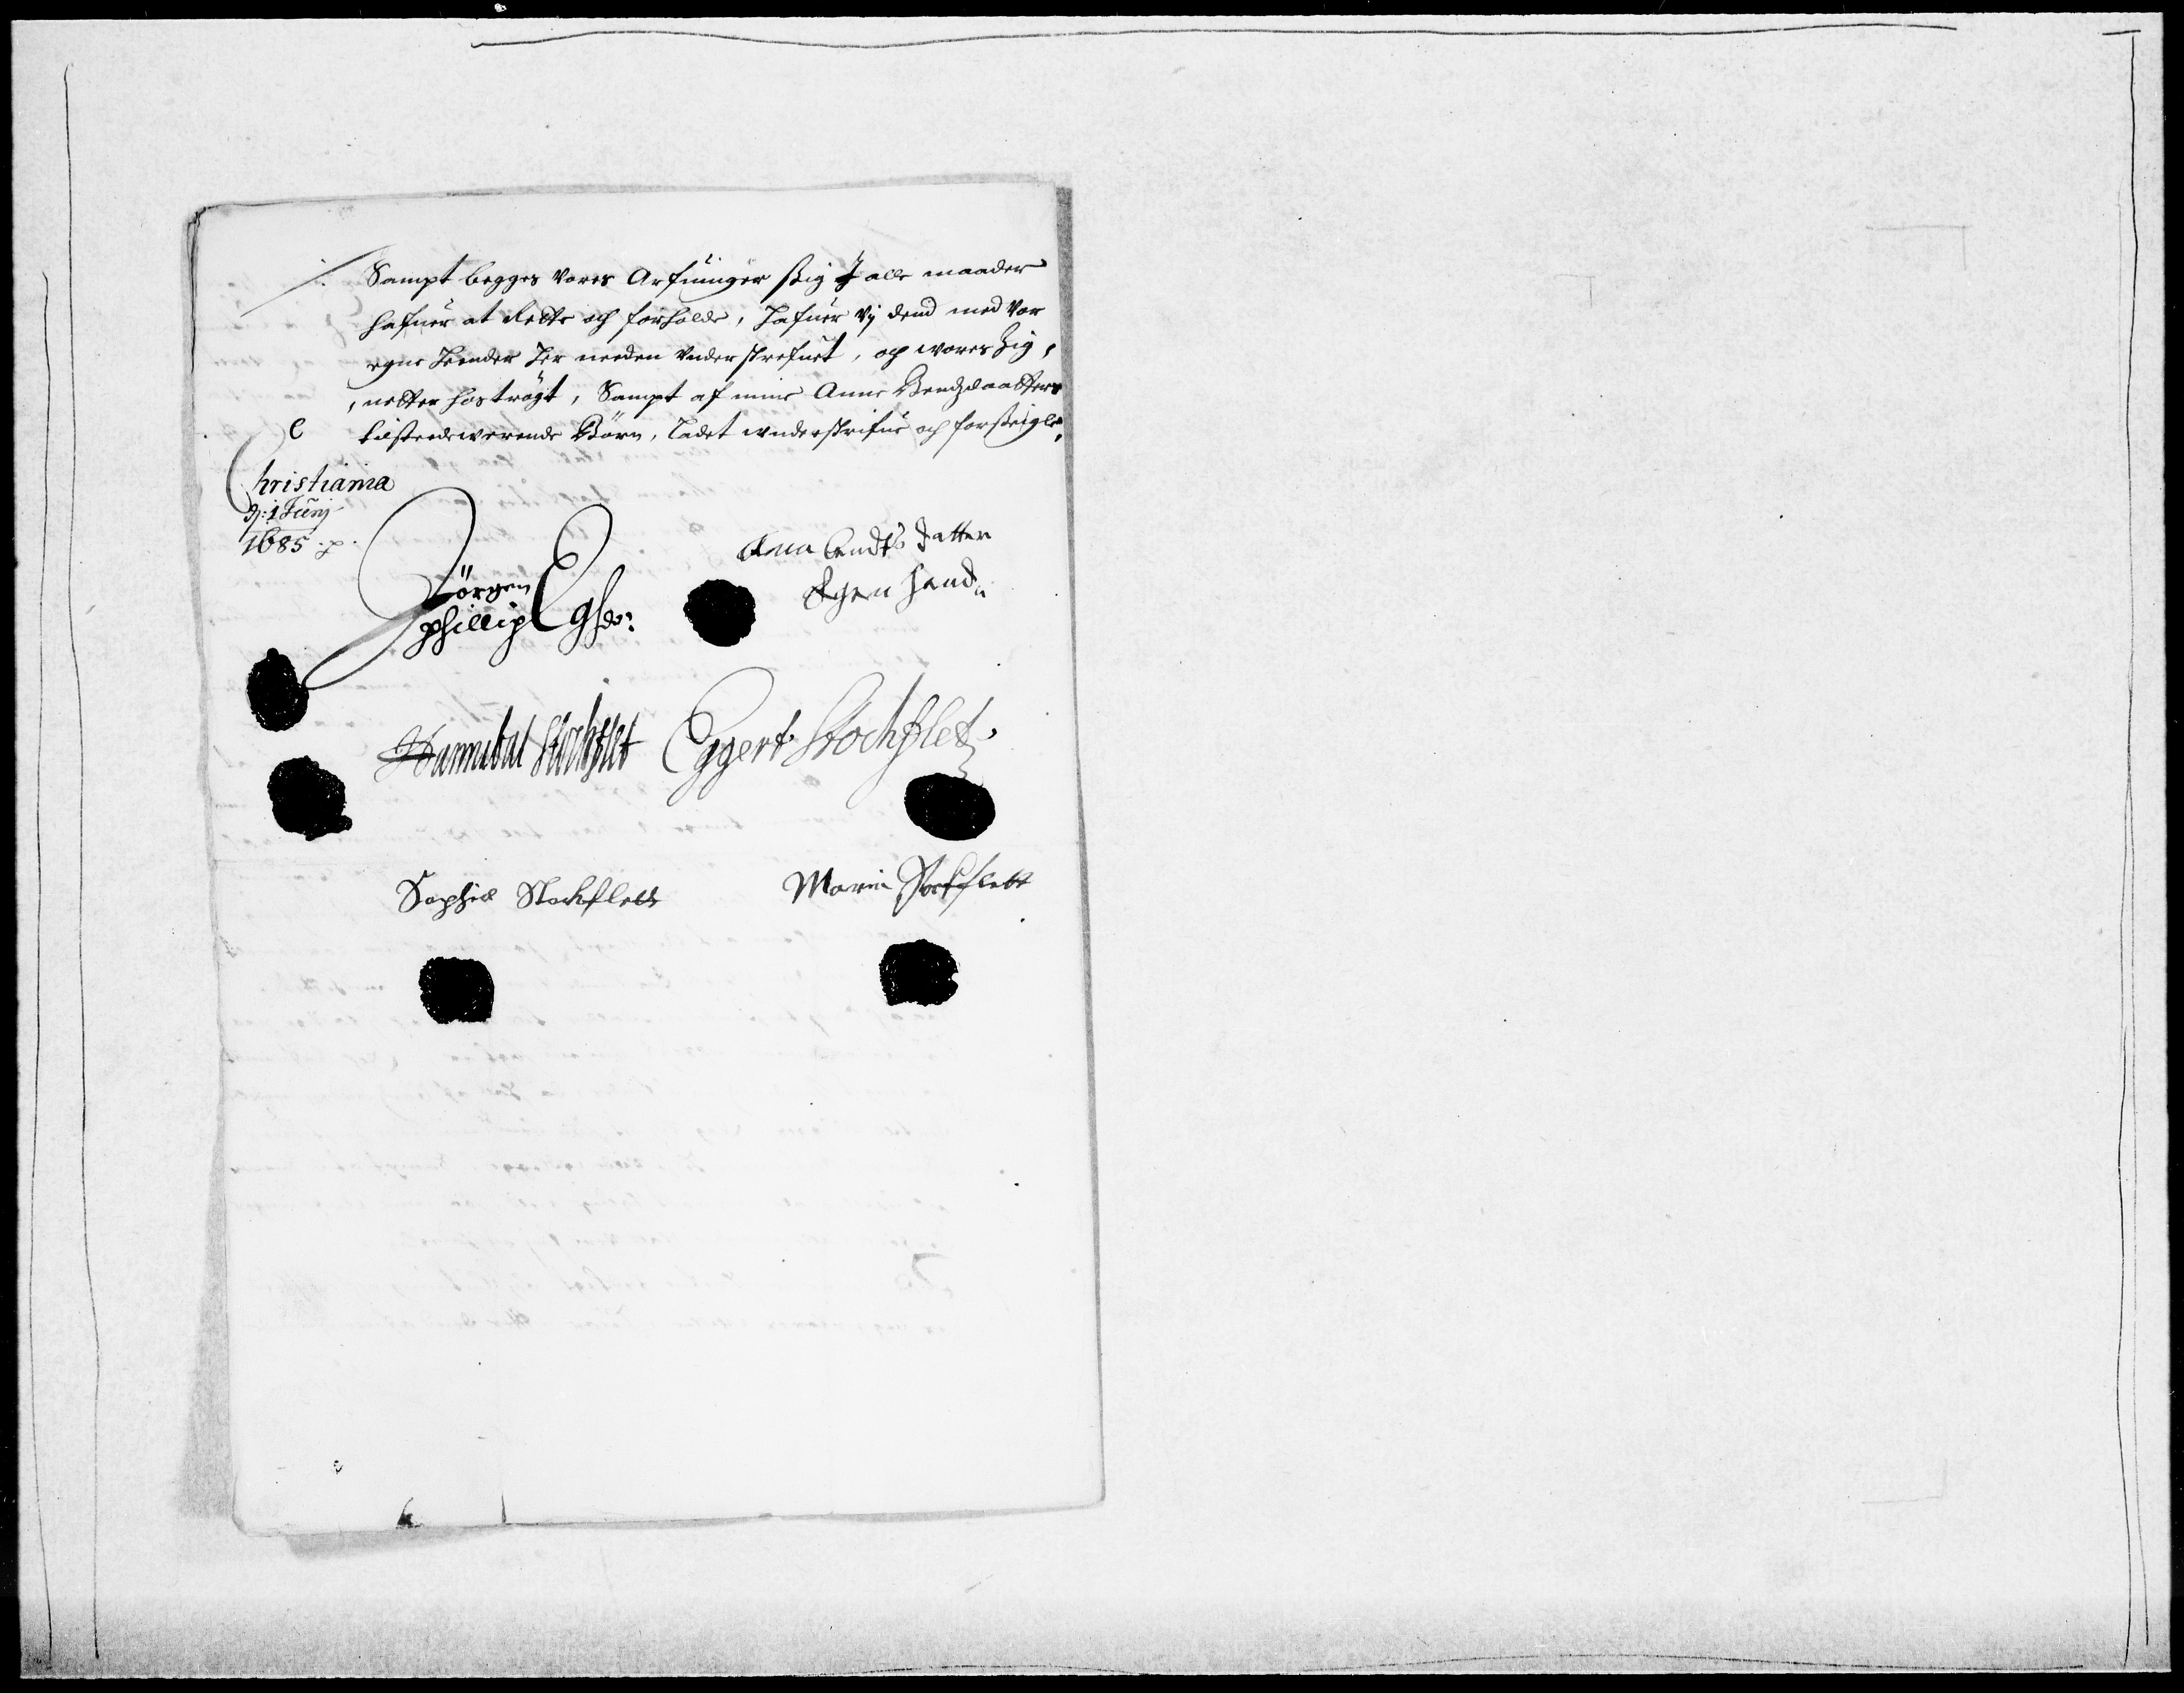 Sampt begges vores Arfuinger sig J alle maader
hafuer at Rette och forholde, Hafuer Vj dend med vor
egne Hender Her neden Vnderskrefuet, och wores Zig,
,netter hoströgt, Sampt af mine Anne Bendzdaatters
tilsteedewerende Börn, ladet wnderskrifue och forseigle,
Christiania
Dj: 1 Junj
1685 .p.
Jörgen
phillip
Ana bendts datter
Egen hand
Hannibal Stochflet Eggert Stochflet
Sophie Stockfleth
Maria Stockflett